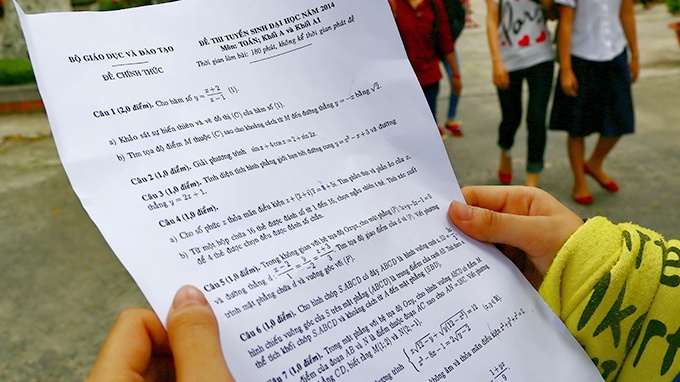 BỘ GIÁO DỤC VÀ ĐÀO TẠO
ĐỀ CHÍNH THỨC
ĐỀ THI TUYỂN SINH ĐẠI HỌC NĂM 2014
Môn: TOÁN; Khối A và Khối A1
Thời gian làm bài: 180 phút, không kể thời gian phát đề
Câu 1 (2,0 điểm). Cho hàm số y = (x+2)/(x−1) (1).
a) Khảo sát sự biến thiên và vẽ đồ thị (C) của hàm số (1).
b) Tìm tọa độ điểm M thuộc (C) sao cho khoảng cách từ M đến đường thẳng y = −x bằng √2.
Câu 2 (1,0 điểm). Giải phương trình sin x + 4cos x = 2 + sin 2x.
Câu 3 (1,0 điểm). Tính diện tích hình phẳng giới hạn bởi đường cong y = x² − x + 3 và đường
thẳng y = 2x + 1.
Câu 4 (1,0 điểm).
a) Cho số phức z thỏa mãn điều kiện z + (2 + i) z̄ = 3 + 5i. Tìm phần thực và phần ảo của z.
b) Từ một hộp chứa 16 thẻ được đánh số từ 1 đến 16, chọn ngẫu nhiên 4 thẻ. Tính xác suất
để 4 thẻ được chọn đều được đánh số chẵn.
Câu 5 (1,0 điểm). Trong không gian với hệ tọa độ Oxyz, cho mặt phẳng (P): 2x + y − 2z − 1 = 0
và đường thẳng d: (x−2)/1 = y/−2 = (z+3)/3. Tìm tọa độ giao điểm của d và (P). Viết phương
trình mặt phẳng chứa d và vuông góc với (P).
Câu 6 (1,0 điểm). Cho hình chóp S.ABCD có đáy ABCD là hình vuông cạnh a, SD =
hình chiếu vuông góc của S trên mặt phẳng (ABCD) là trung điểm của cạnh AB. Tính theo a
thể tích khối chóp S.ABCD và khoảng cách từ A đến mặt phẳng (SBD).
Câu 7 (1,0 điểm). Trong mặt phẳng với hệ tọa độ Oxy, cho hình vuông ABCD có điểm M
điểm của đoạn AB và N là điểm thuộc đoạn AC sao cho AN = 3NC. Viết phương
thẳng CD, biết rằng M(1; 2) và N(2; −1).
x√(12 − y) + √(y(12 − x²)) = 12
x³ − 8x − 1 = 2√(y − 2)
(x, y ∈ ℝ).
không âm và thỏa mãn điều kiện x² + y² + z² =